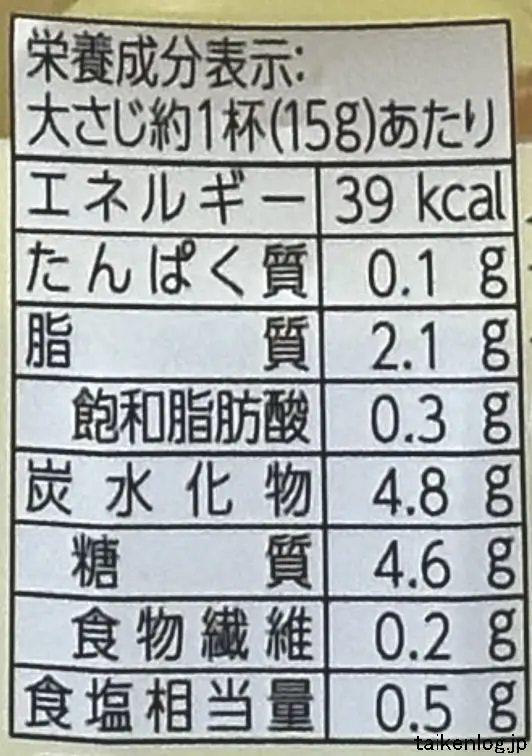 栄養成分表示:
大さじ約1杯(15g)あたり
エネルギー 39 kcal
たんぱく質 0.1 g
脂質 2.1 g
飽和脂肪酸 0.3 g
炭水化物 4.8 g
糖質 4.6 g
食物繊維 0.2 g
食塩相当量 0.5 g
taikenlog.jp